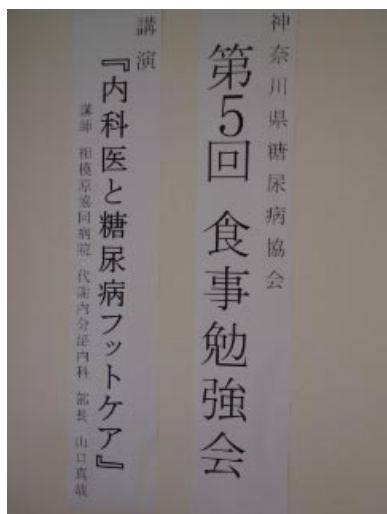 神奈川県糖尿病協会
第5回 食事勉強会
講演
『内科医と糖尿病フットケア』
講師 相模原協同病院 代謝内分泌内科 部長 山口真哉